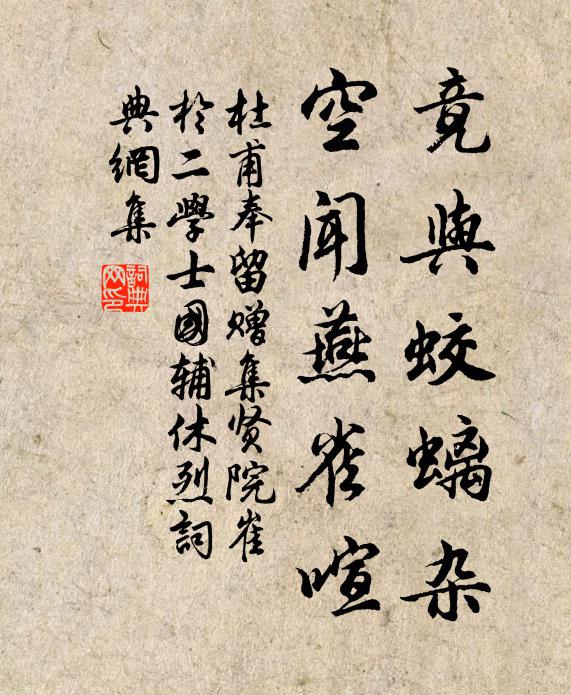 竟與蛟螭杂
空闻燕雀喧
杜甫奉留赠集贤院崔
於二學士國辅休烈詞
典網集
詞典
网印